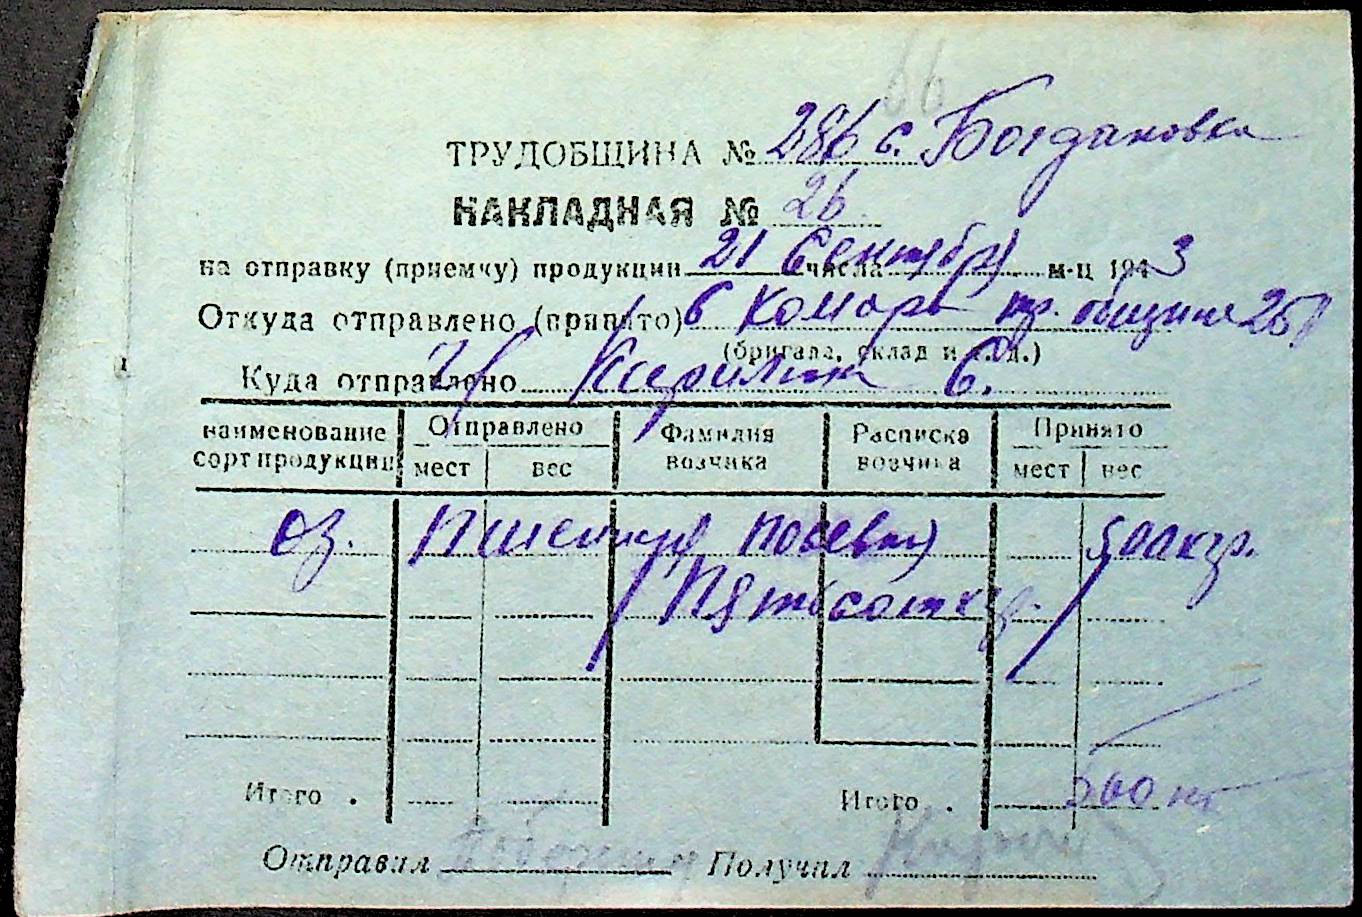 66
ТРУДОБЩИНА № 286 с. Богдановка
НАКЛАДНАЯ № 26
на отправку (приемку) продукции 21 числа Сентября м-ц 1943
Откуда отправлено (принято) в Комора тр. общине 25
(бригада, склад и т.д.)
Куда отправлено С.
наименование сорт продукции Отправлено Фамилия возчика Расписка возчика Принято
мест вес мест вес
оз. Пшеницы посевной 500 кгр.
Пятьсот кгр.
Итого . Итого . 500 кг
Отправил Получил